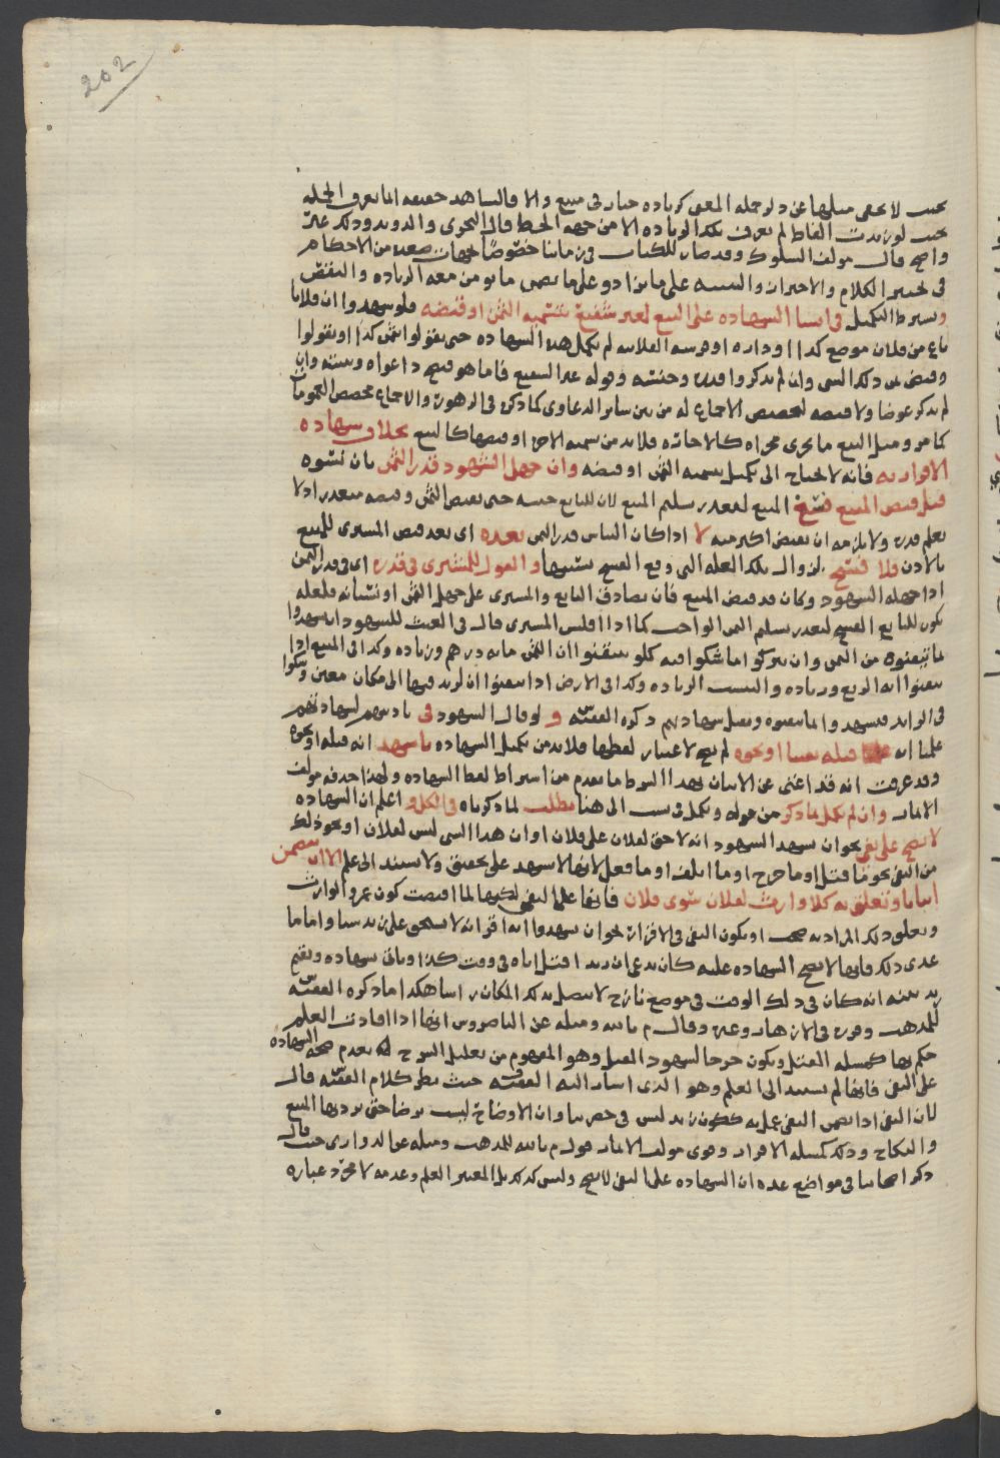 202
بحيث لا يخفى مثلها عن ذلو جمله المعنى كزياده خيار في مبيع والا فالشاهد حقيقه انما يعرف الجمله
بحيث لو زيدت الفاظ لم يعرف تلك الزياده الا من جهه الخط قال النجري والدويد وذلك غير
واضح قال مولف السلوك وقد صار للكتاب في زماننا خصوصا لجهات صعده من الاحكام
في تحسين الكلام والاحتراز والتنبيه على ما زاد وعلى ما نقص ما يومن معه الزياده والنقص
ويشترط التكميل في انشا الشهاده على البيع لغير شفيع بتسميه الثمن او قبضه فلو شهدوا ان فلانا
باع من فلان موضع كذا او داره او فرسه الفلانيه لم تكمل هذه الشهاده حتى يقولوا بثمن كذا او يقولوا
وقبض ثمن ذلك الشي وان لم يذكروا قدره وجنسه وقوله غير الشفيع فاما هو فيصح دعواه وبينته وان
لم يذكر عوضا ولا قبضه لتخصيص الاجماع له من بين ساير الدعاوى كما ذكره في الزهور والاجماع مخصص العمومات
كما مر ومثل البيع ما يجري مجراه كالاجاره فلا بد من تسميه الاجره او قبضها كالبيع بخلاف شهاده
الاقرار به فانه لا يحتاج الى تكميل بتسميه الثمن او قبضه وان جهل الشهود قدر الثمن بان نسوه
قبل قبض المبيع فسخ المبيع لتعذر تسليم المبيع لان للبايع حبسه حتى يقبض الثمن وقبضه متعذر اذ لا
يعلم قدره ولا يلزمه ان يقبض اكثر منه لا اذا كان التباس قدر الثمن بعده اي بعد قبض المشتري للمبيع
بالاذن فلا فسخ لزوال تلك العله التي وقع الفسخ بسببها والقول للمشتري في قدره اي في قدر الثمن
اذا جهله الشهود وكان قد قبض المبيع فان تصادق البايع والمشتري على جهل الثمن او نسيانه فلعله
يكون للبايع الفسخ لتعذر تسليم الثمن الواجب كما اذا افلس المشتري قال في الغيث للشهود ان يشهدوا
بما تيقنوه من الثمن وان يتركوا ما شكوا فيه كلو تيقنوا ان الثمن مايه درهم وزياده وكذا في المبيع اذا
تيقنوا انه الربع وزياده والتبست الزياده وكذا في الارض اذا تيقنوا ان لزيد فيها الى مكان معين وشكوا
في الزايد فيشهدوا بما تيقنوه وتبطل شهادتهم ذكره الفقيه ف ولو قال الشهود في تاديتهم لشهادتهم
علمنا انه قتله يقينا او نحوه لم يصح لاعتبار لفظها فلا بد من تكميل الشهاده باشهد انه قتله او نحوه
وقد عرفت انه قد اغنى عن الاتيان بهذا الشرط ما تقدم من اشتراط لفظ الشهاده ولهذا حذفه مولف
الاثمار وان لم يكمل بما ذكر من قوله ويكمل في نسب الى هنا بطلت لما ذكرناه في الكل و اعلم ان الشهاده
لا تصح على نفي نحو ان يشهد الشهود انه لا حق لفلان على فلان او ان هذا الشي ليس لفلان او نحو ذلك
من النفي نحو ما قتل او ما جرح او ما اتلف او ما فعل لانها لا تشهد على تحقيق ولا تستند الى علم الا ان يتضمن
اثباتا وتعلق به كلا وارث لفلان سوى فلان فانها على النفي لكنها لما اقتضت كون عمرو الوارث
وتعلق ذلك المراد به صحت او يكون النفي في الاقرار نحو ان يشهدوا انه اقر انه لا يستحق على زيد شيا واما ما
عدى ذلك فانها لا تصح الشهاده عليه كان يدعي ان زيدا قتل اباه في وقت كذا وياتي بشهاده ويقيم
زيد بينه انه كان في ذلك الوقت في موضع نازح لا يتصل بذلك المكان راسا هكذا ما ذكره الفقيه
للمذهب وقرره في الازهار وغيره وقال م بالله ومثله عن الناصر وس انها اذا افادت العلم
حكم بها كمسله القتل ويكون جرحا لشهود القتل وهو المفهوم من تعليل الشرح له بعدم صحه الشهاده
على النفي فانها لم تستند الى العلم وهو الذي اشار اليه الفقيه حيث نظر كلام الفقيه قال
لان النفي اذا تضمن النفي عمل به ككون زيد ليس في حضرتنا وان الاوضاح ليست برضا حتى يرد بها المبيع
والنكاح وذلك كمسله الاقرار وقوى مولف الاثمار قول م بالله للمذهب ومثله عن الدواري حيث قال
ذكر اصحابنا في مواضع عده ان الشهاده على النفي لا تصح وليس كذلك بل المعتبر العلم وعدمه لا مجرد عباره